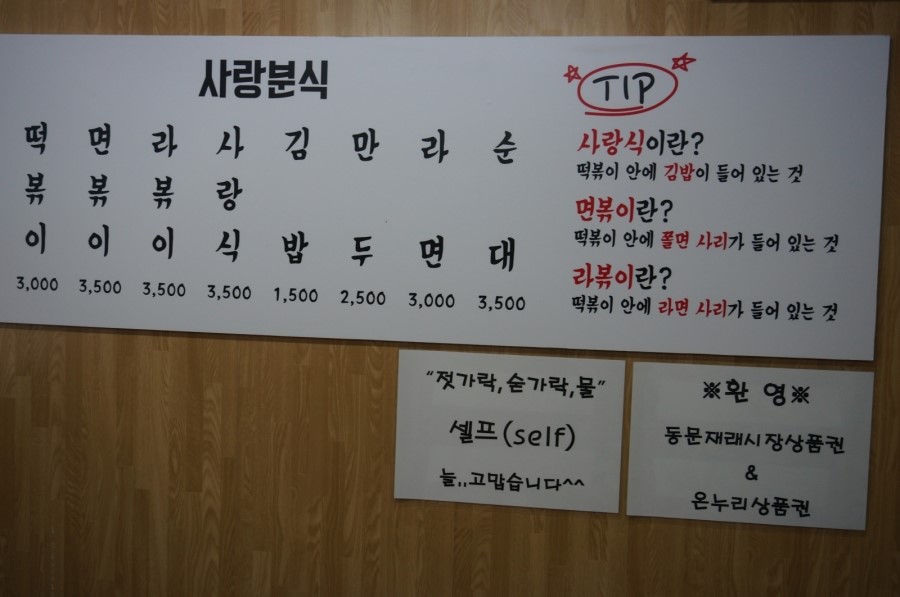 사랑분식
떡볶이 3,000
면볶이 3,500
라볶이 3,500
사랑식 3,500
김밥 1,500
만두 2,500
라면 3,000
순대 3,500
TIP
사랑식이란?
떡볶이 안에 김밥이 들어 있는 것
면볶이란?
떡볶이 안에 쫄면 사리가 들어 있는 것
라볶이란?
떡볶이 안에 라면 사리가 들어 있는 것
“젓가락,숟가락,물”
셀프(self)
늘..고맙습니다^^
※환 영※
동문재래시장상품권
&
온누리상품권